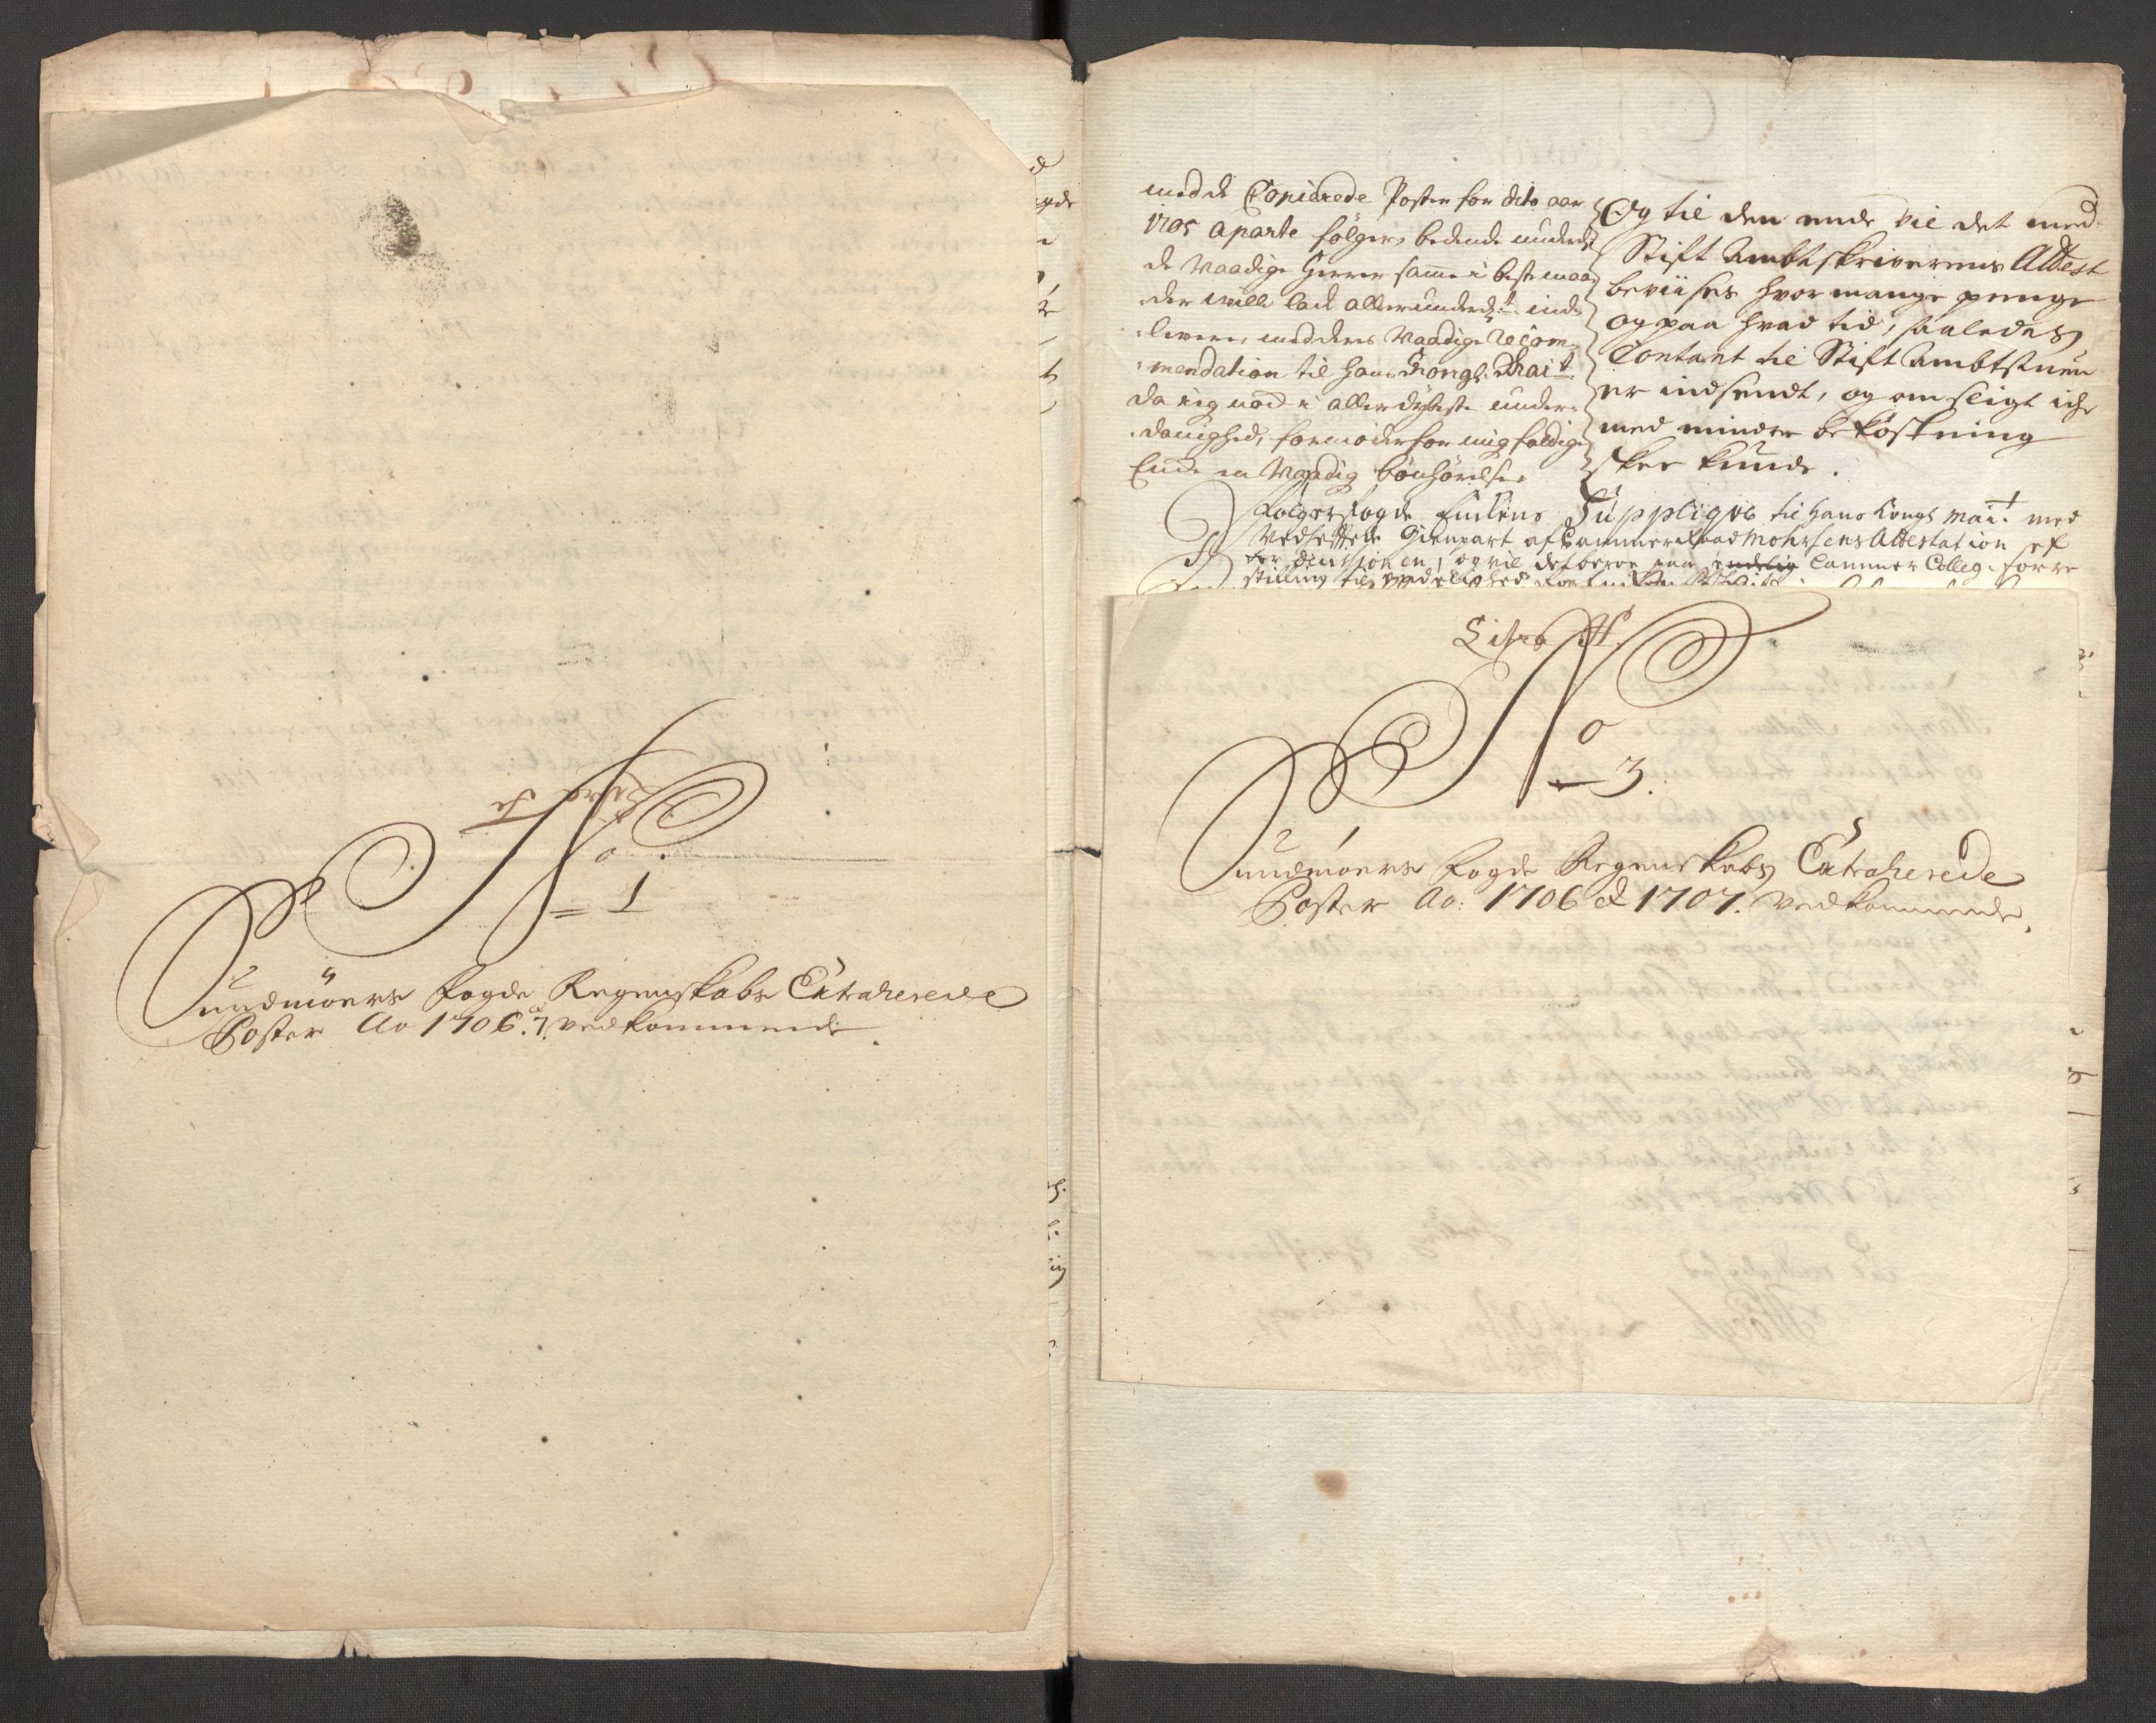 No
= 1
Sundmöers Fogde Regenskabs Extraherede
Poster Ao 1706 et 7. vedkommende
med de Copierede Poster for dito aar
1705 aparte følger, bedende underd:
de Naadige Herrer samme i beste maa
der wille lade allerunderd:t ind
levere, med deres Naadige Recom-
mendation til Hans Kongl: Mai:t
da ieg nock i allerdybeste under-
danighed, formoder for mig faldige
Ende en Naadig bönhörelse
Og til den ende vil det med
Stift Ambtskriverens Attest
beviises hvor mange penge
og paa hvad tid, saaledes
Contant til Stift Ambtstuen
er indsendt, og om sligt icke
med mindre bekostning
skee kunde.
Følger Fogde Juulens Supplique til Hans Kongl Mai:t med
Vedheftede Gienpart af Cammer Raad Mohrsens Attestation
decisionen, og vil det beroe paa endelig Cammer Colleg: forre
stilling til
Litra
No
3.
Sundmöers Fogde Regenskabs Extraherede
Poster Ao: 1706 et 1707. vedkommende